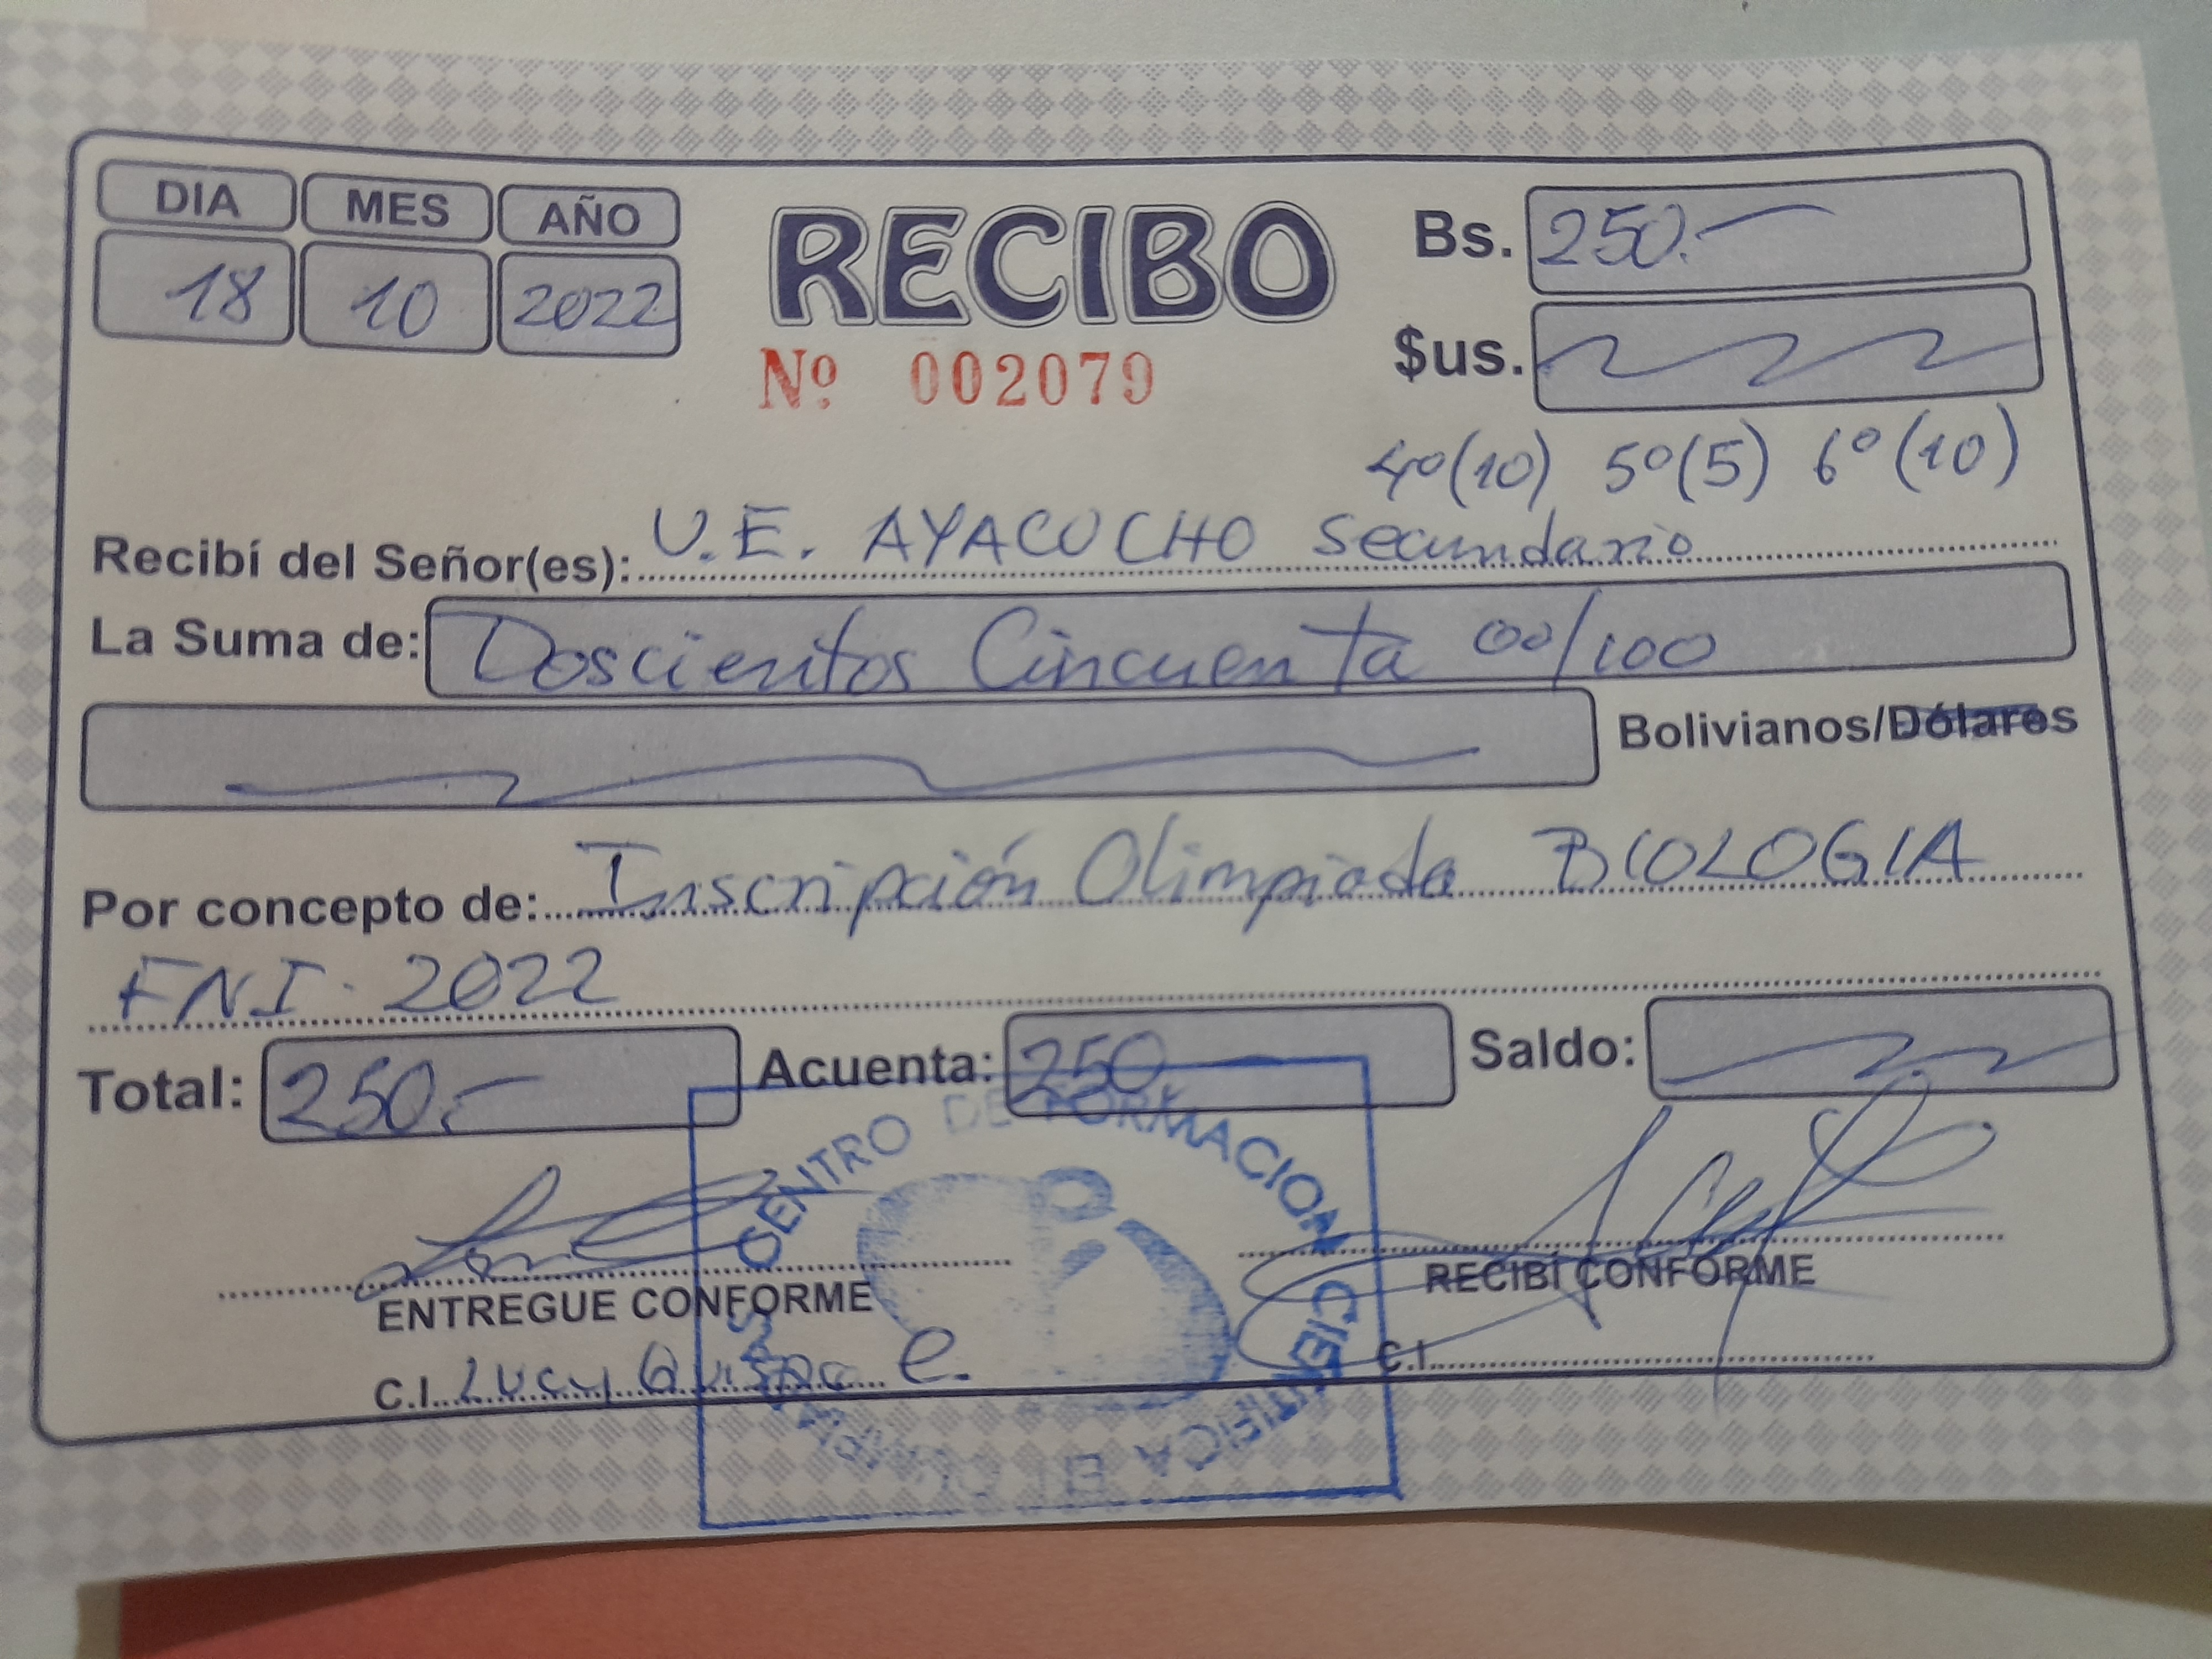 DIA MES AÑO
18 10 2022
RECIBO
Nº 002079
Bs. 250.-
$us.
4º(10) 5º(5) 6º(10)
Recibí del Señor(es): U.E. AYACUCHO secundario
La Suma de: Doscientos Cincuenta 00/100
Bolivianos/Dólares
Por concepto de: Inscripción Olimpiada BIOLOGIA
FNI. 2022
Total: 250.- Acuenta: 250 Saldo:
ENTREGUE CONFORME
RECIBI CONFORME
C.I. Lucy
C.I.
CENTRO DE FORMACIÓN
CIENTIFICA